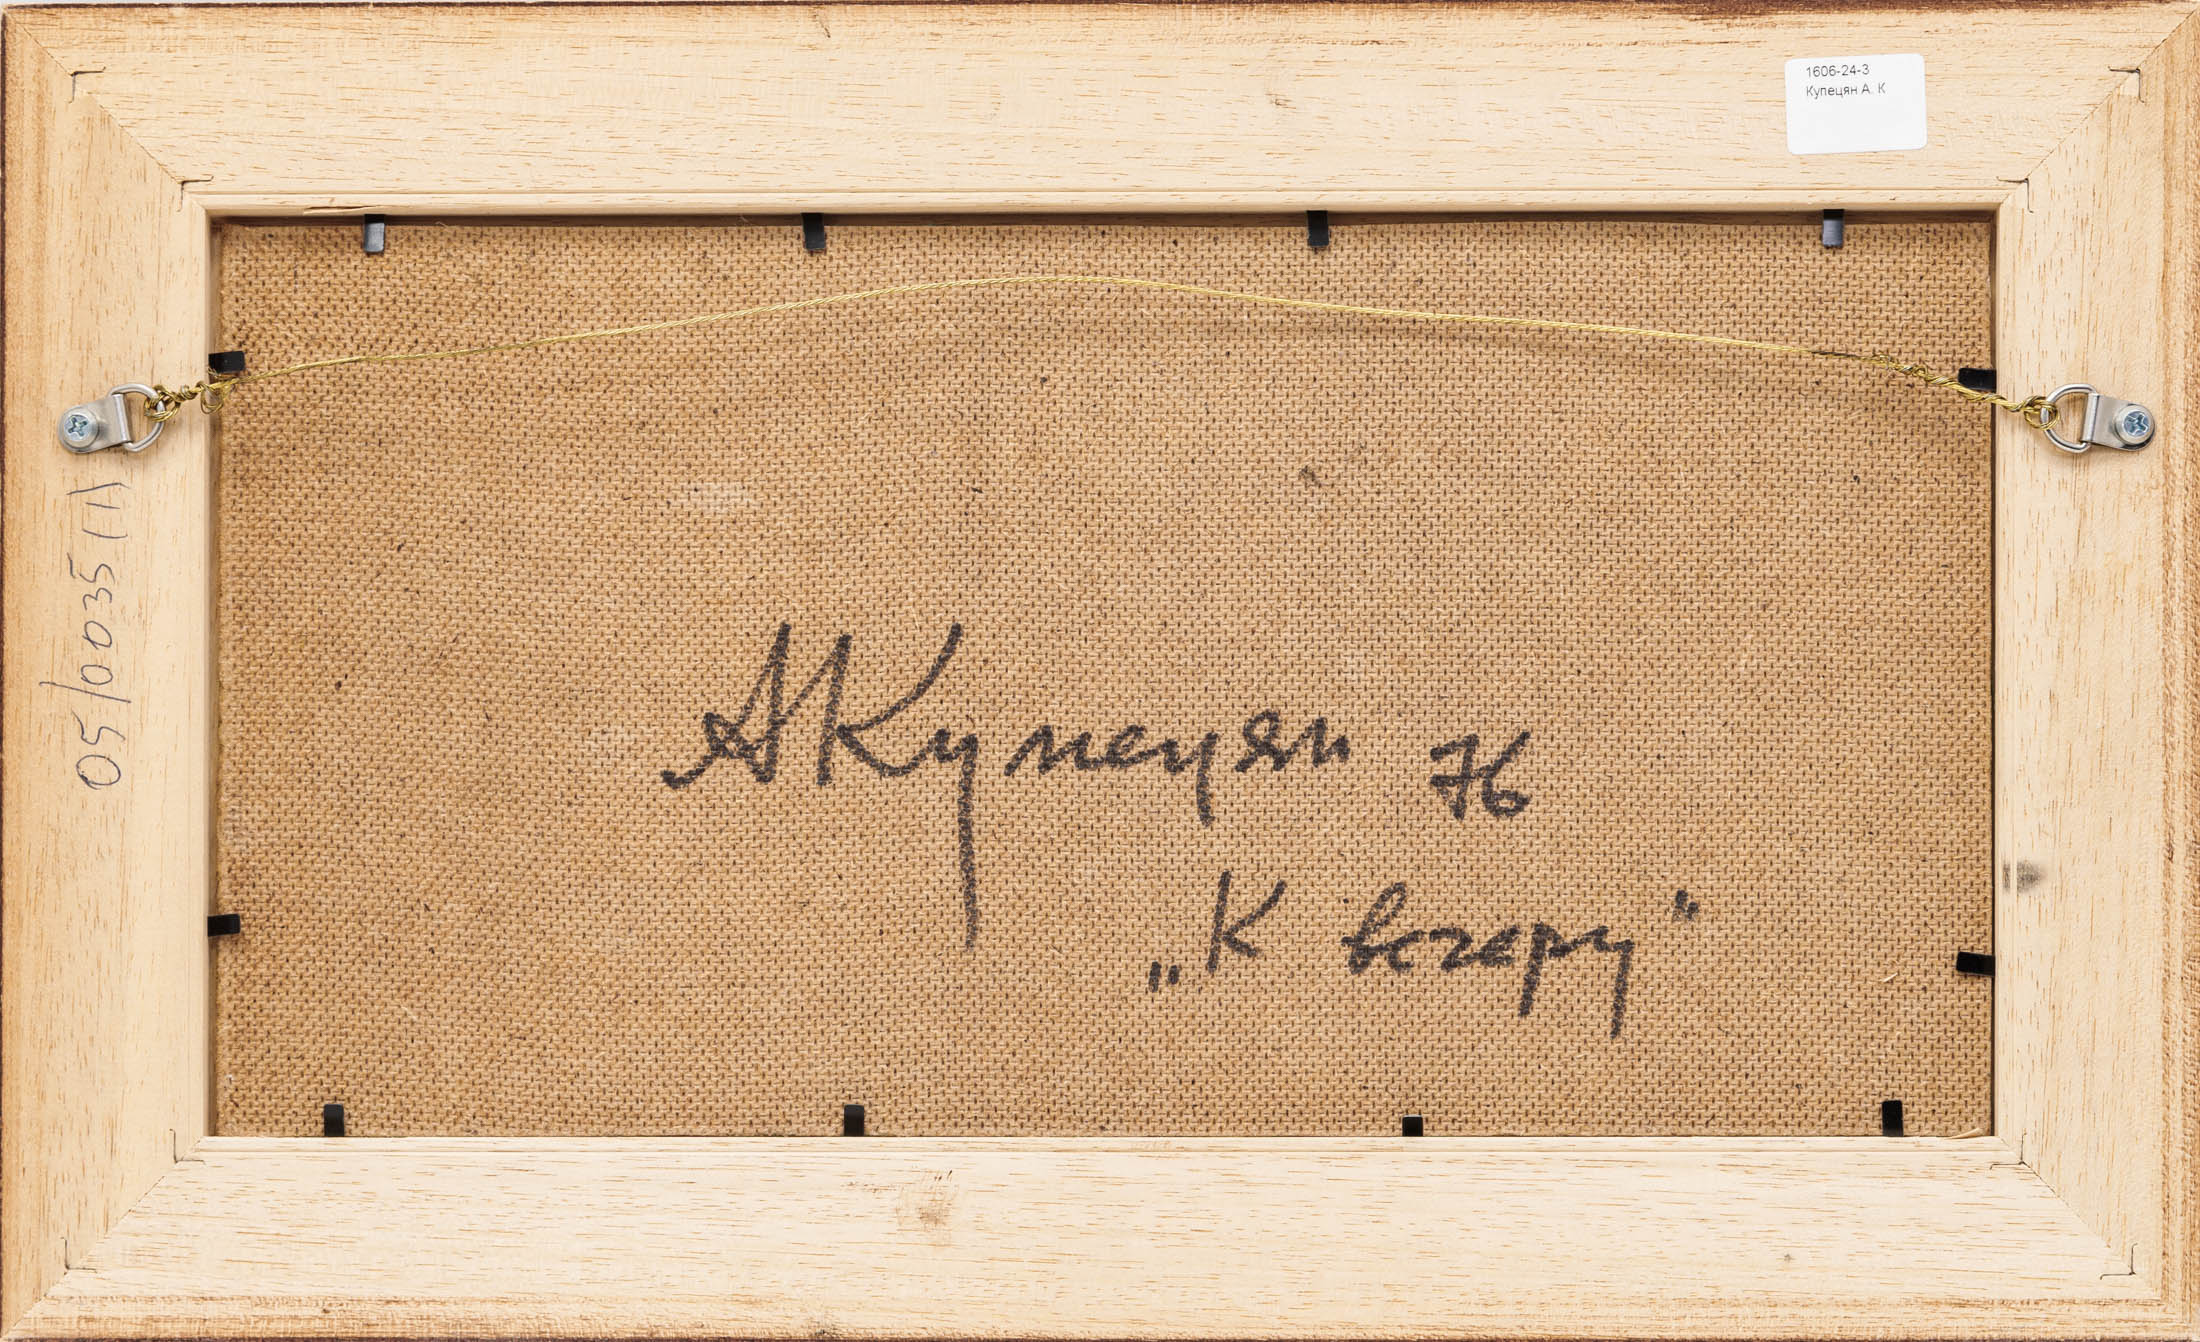 1606-24-3
Купецян А. К
05/0035 (1)
АКупецян 76
„К вечеру"